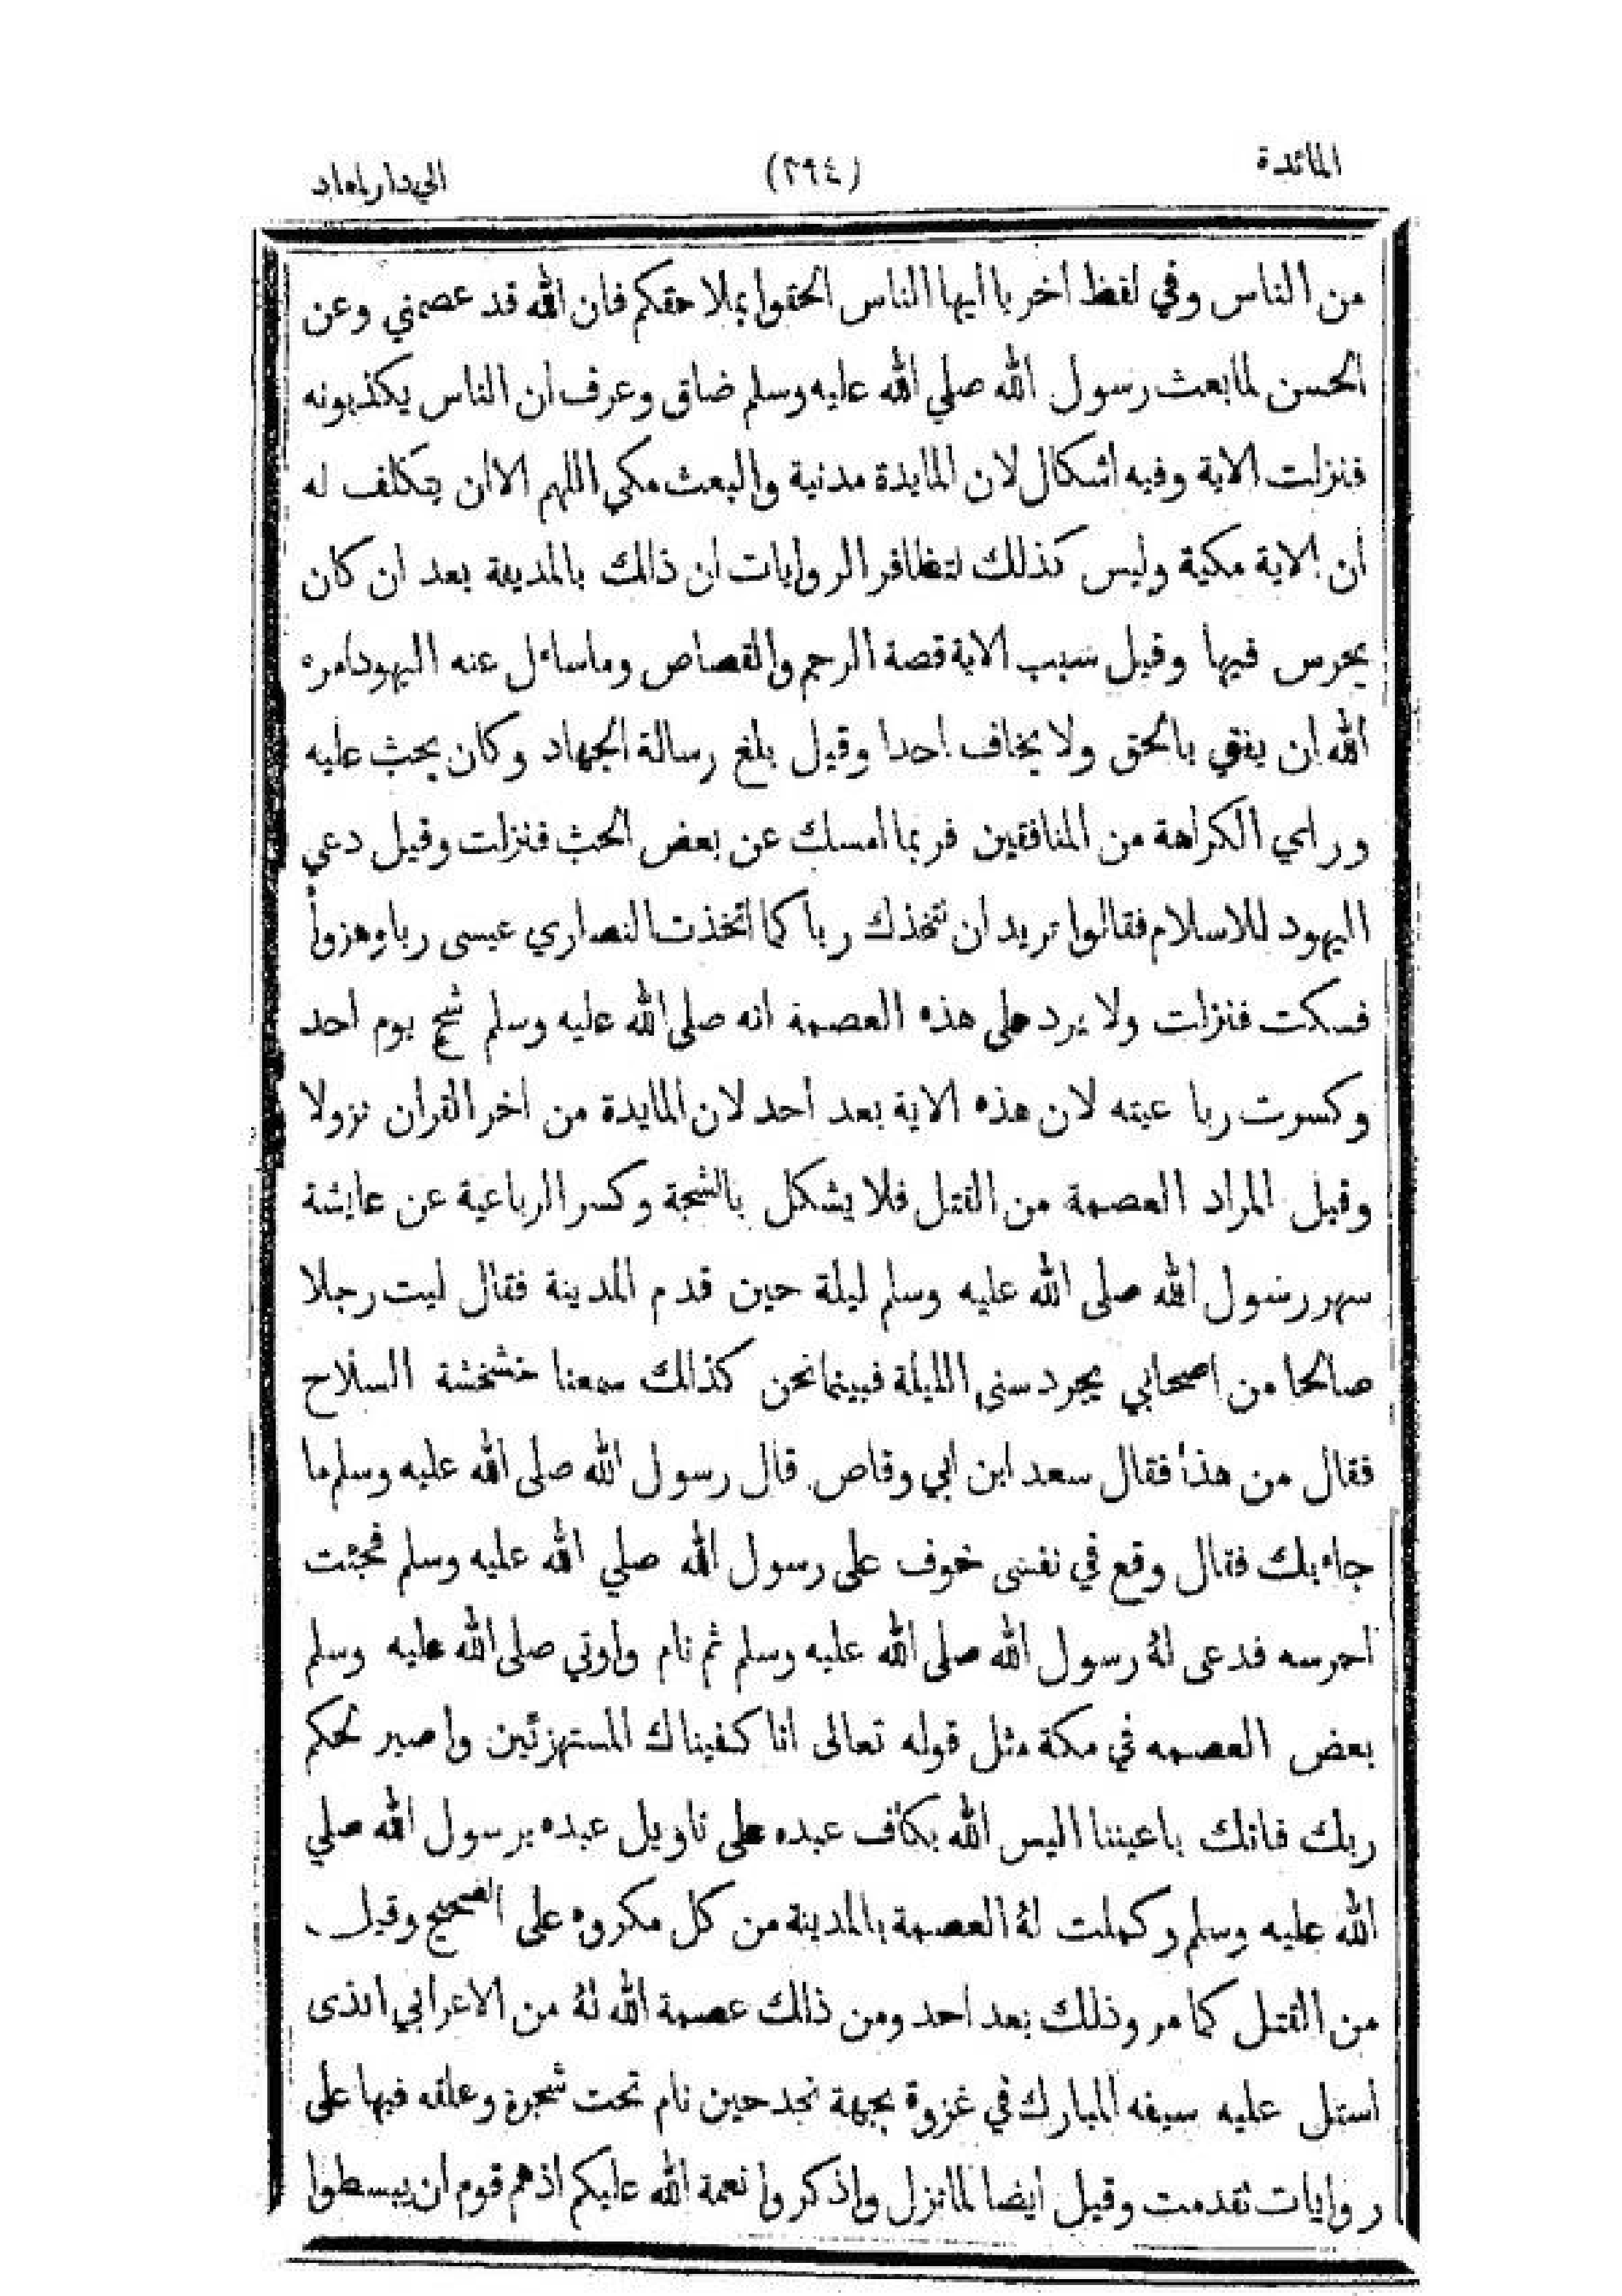 المائدة
(٣٩٤)
من الناس وفي لفظ اخر يا ايها الناس الحقوا بملاحقكم فان الله قد عصمني وعن
الحسن لما بعث رسول الله صلي الله عليه وسلم ضاق وعرف ان الناس يكذبونه
فنزلت الاية وفيه اشكال لان المايدة مدنية والبعث مكي اللهم الا ان يتكلف له
ان الاية مكية وليس كذلك لتظافر الروايات ان ذالك بالمدينة بعد ان كان
يحرس فيها وقيل سبب الاية قصة الرجم والقصاص وما ساءل عنه اليهود امره
الله ان يفتي بالحق ولا يخاف احدا وقيل بلغ رسالة الجهاد وكان يحث عليه
وراي الكراهة من المنافقين فربما امسك عن بعض الحث فنزلت وقيل دعي
اليهود للاسلام فقالوا تريد ان نتخذك ربا كما اتخذت النصاري عيسى ربا وهزوأ
فسكت فنزلت ولا يرد على هذه العصمة انه صلى الله عليه وسلم شج يوم احد
وكسرت ربا عيته لان هذه الاية بعد احد لان المايدة من اخر القران نزولا
وقيل المراد العصمة من القتل فلا يشكل بالشجة وكسر الرباعية عن عايشة
سهر رسول الله صلى الله عليه وسلم ليلة حين قدم المدينة فقال ليت رجلا
صالحا من اصحابي يحرسني الليلة فبينما نحن كذالك سمعنا خشخشة السلاح
فقال من هذا فقال سعد ابن ابي وقاص قال رسول الله صلى الله عليه وسلم ما
جاء بك فقال وقع في نفسى خوف على رسول الله صلي الله عليه وسلم فجئت
احرسه فدعى له رسول الله صلى الله عليه وسلم ثم نام واوتي صلى الله عليه وسلم
بعض العصمه في مكة مثل قوله تعالى انا كفيناك المستهزئين واصبر لحكم
ربك فانك باعيننا اليس الله بكاف عبده على تاويل عبده برسول الله صلي
الله عليه وسلم وكملت له العصمة بالمدينة من كل مكروه على الصحيح وقيل
من القتل كما مر وذلك بعد احد ومن ذالك عصمة الله له من الاعرابي الذى
استل عليه سيفه المبارك في غزوة بجهة نجد حين نام تحت شجرة وعلقه فيها على
روايات تقدمت وقيل ايضا لما نزل واذكروا نعمة الله عليكم اذ هم قوم ان يبسطوا